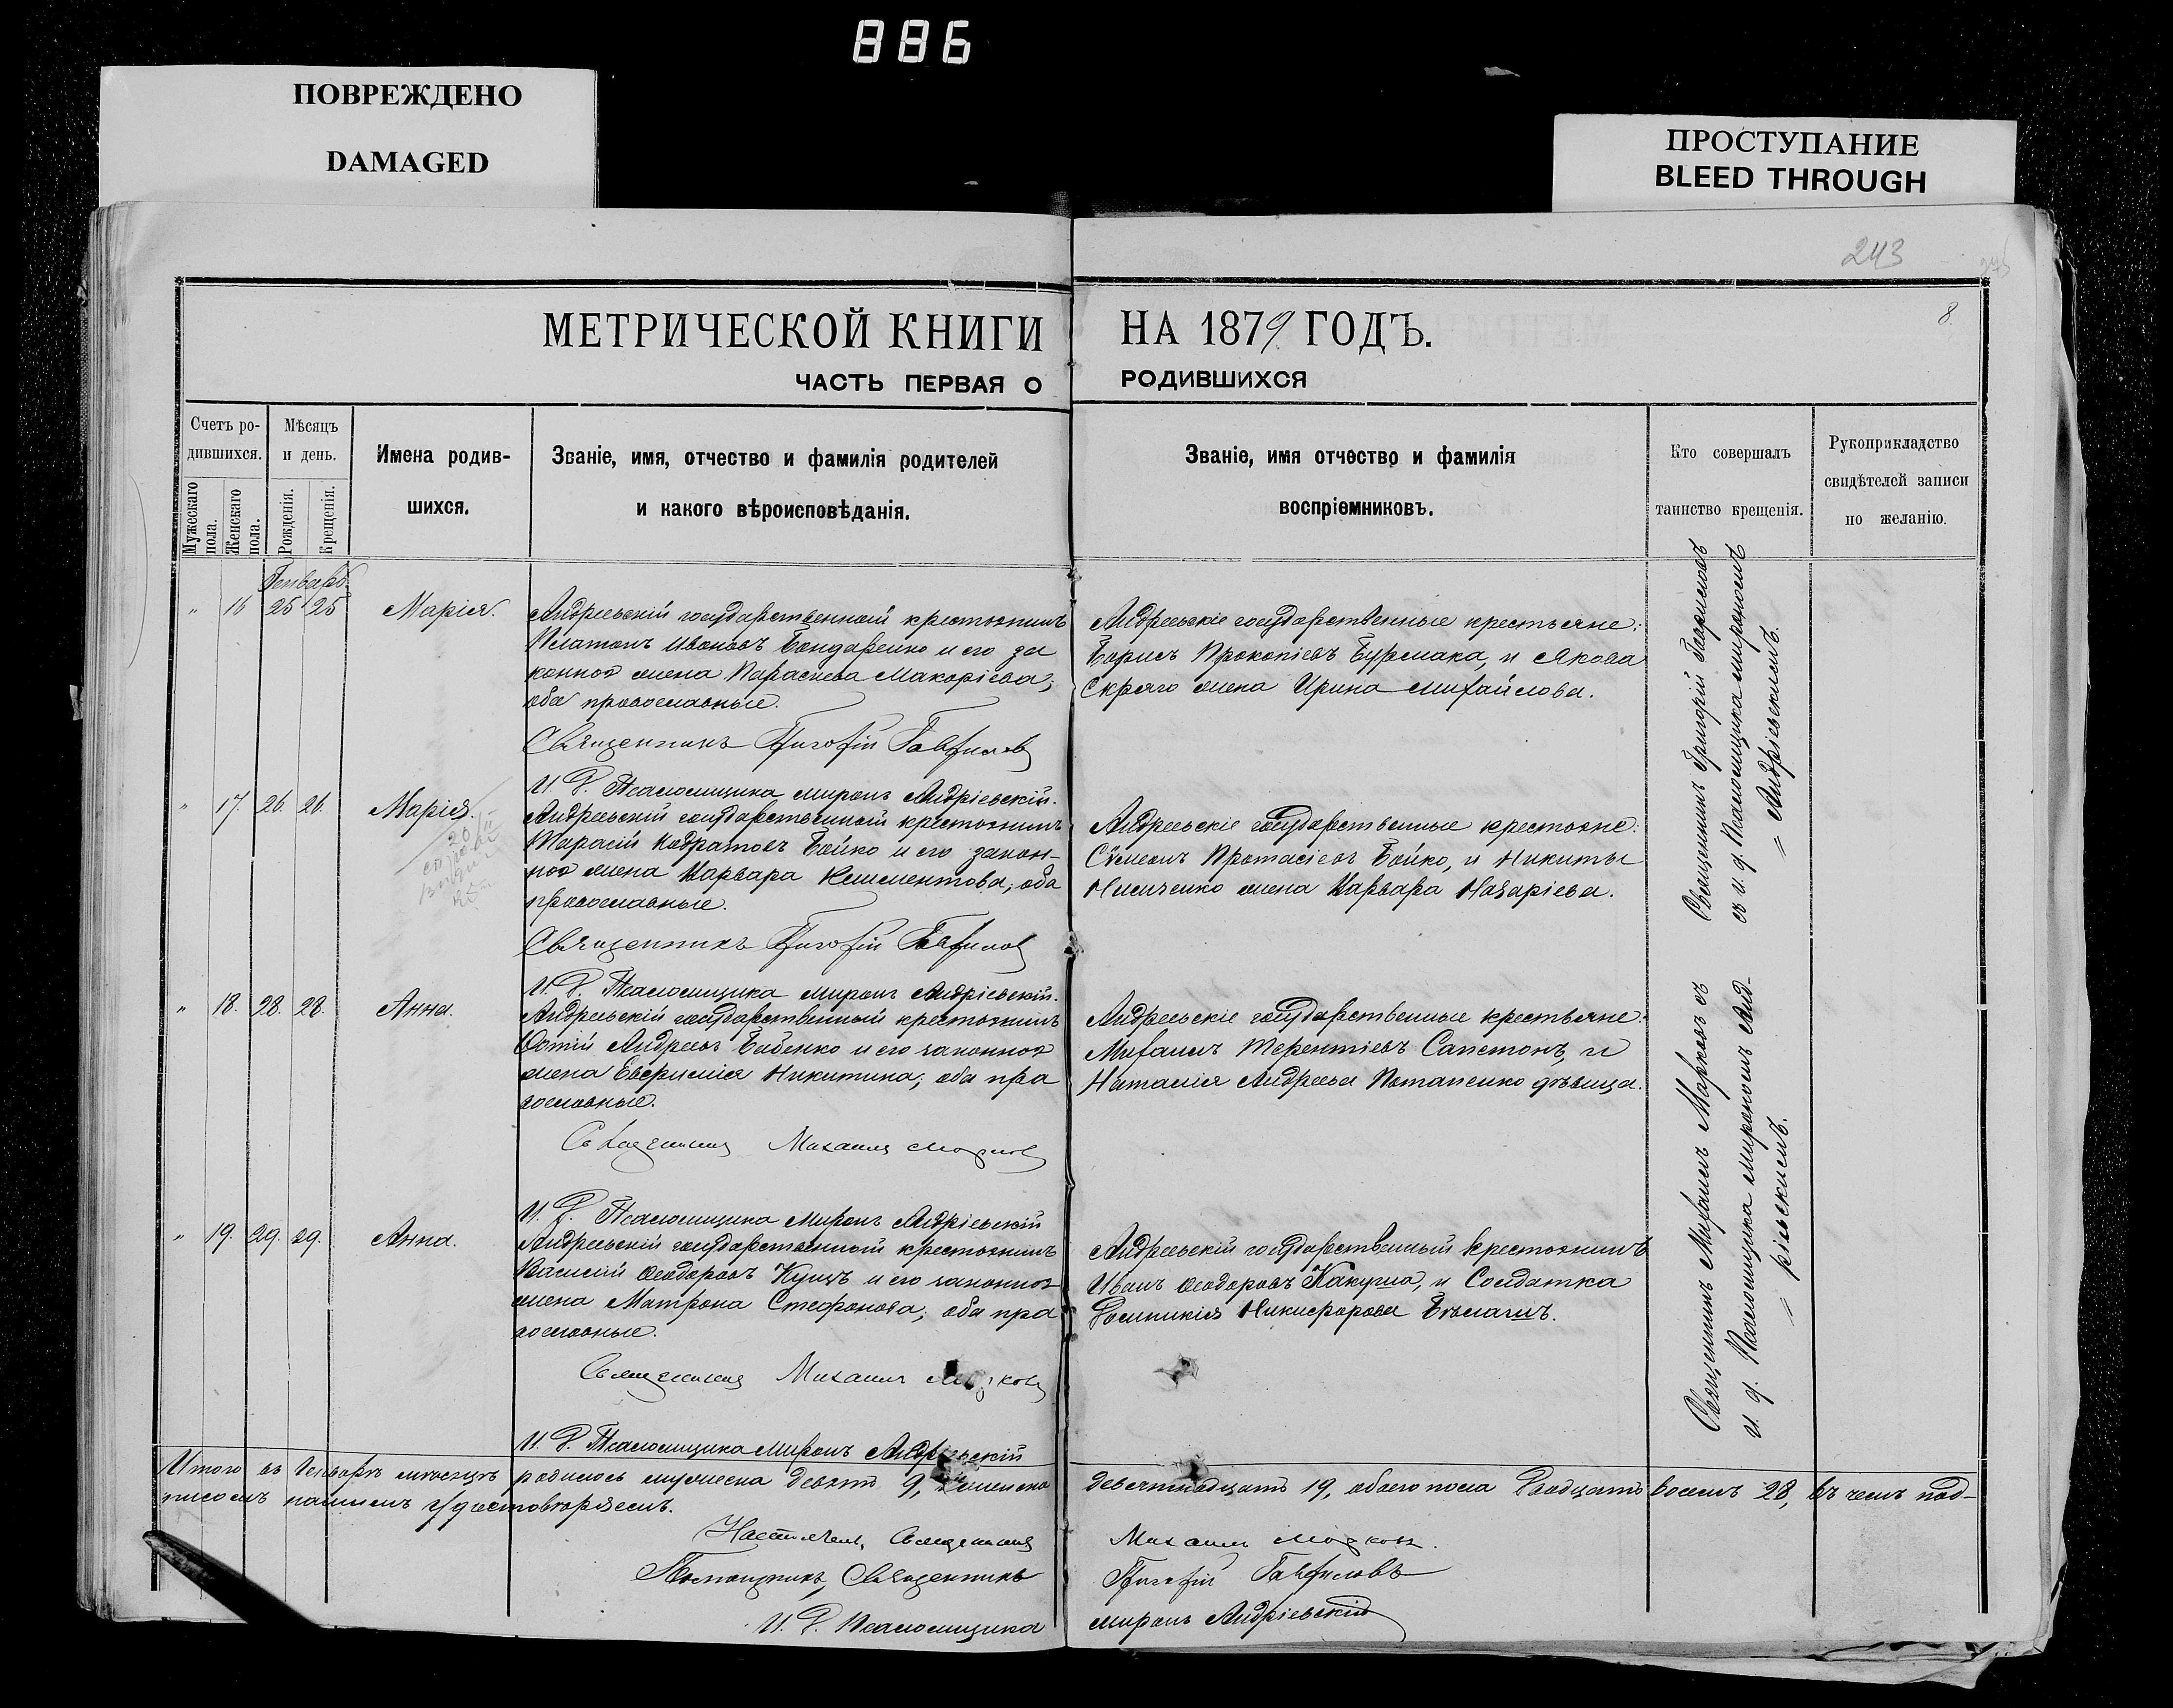 886
ПОВРЕЖДЕНО
DAMAGED
ПРОСТУПАНИЕ
BLEED THROUGH
243
8.
МЕТРИЧЕСКОЙ КНИГИ НА 1879 ГОДЪ.
ЧАСТЬ ПЕРВАЯ О РОДИВШИХСЯ
Счетъ ро-
дившихся.
Мужескаго пола.
Женскаго пола.
Мѣсяцъ
и день.
Рожденія.
Крещенія.
Имена родив-
шихся.
Званіе, имя, отчество и фамилія родителей
и какого вѣроисповѣданія.
Званіе, имя отчество и фамилія
воспріемниковъ.
Кто совершалъ
таинство крещенія.
Рукоприкладство
свидѣтелей записи
по желанію.
Генварь
" 16 25 25 Марія.
Андреевскій государственный крестьянинъ
Платонъ Ивановъ Бондаренко и его за
конная жена Параскева Макаріева;
оба православные.
Священникъ Григорій Гавриловъ
И. Д. Псаломщика Миронъ Андріевскій.
Андреевскіе государственные крестьяне:
Борисъ Прокопіевъ Бурлака, и Якова
Скряго жена Ирина Михайлова.
Священникъ Григорій Гавриловъ
съ и. д. Псаломщика Мирономъ
= Андріевскимъ.
" 17. 26. 26. Марія.
Андреевскій государственный крестьянинъ
Тарасій Кодратовъ Бойко и его закон-
ная жена Варвара Климентова; оба
православные.
Священникъ Григорій Гавриловъ
И. Д. Псаломщика Миронъ Андріевскій.
Андреевскіе государственные крестьяне:
Сѵмеонъ Протасіевъ Бойко, и Никиты
жена Варвара Назаріева.
" 18. 28. 28. Анна.
Андреевскій государственный крестьянинъ
Андреевъ Бабенко и его законная
жена Евфимія Никитина; оба пра
вославные.
Священникъ Михаилъ Марковъ
И. Д. Псаломщика Миронъ Андріевскій
Андреевскіе государственные крестьяне:
Михаилъ Терентіевъ Сапетонъ, и
Наталія Андреева Потапенко дѣвица.
Священникъ Михаилъ Марковъ съ
и. д. Псаломщика Мирономъ Анд-
= ріевскимъ.
" 19. 29. 29. Анна.
Андреевскій государственный крестьянинъ
Василій Ѳеодоровъ Куцъ и его законная
жена Матрона Стефанова; оба пра
вославные.
Священникъ Михаилъ Марковъ
И. Д. Псаломщика Миронъ Андріевскій
Андреевскій государственный крестьянинъ
Иванъ Ѳеодоровъ Какуша, и Солдатка
Домникія Никифорова
Итого въ Генварѣ мѣсяцѣ родилось мужеска девять 9, женска девятнадцать 19, обоего пола двадцать восемь 28, въ чемъ под-
писомъ нашимъ удостовѣряемъ.
Настоятель, Священникъ Михаилъ Марковъ.
Помощникъ, Священникъ Григорій Гавриловъ
И. Д. Псаломщика Миронъ Андріевскій